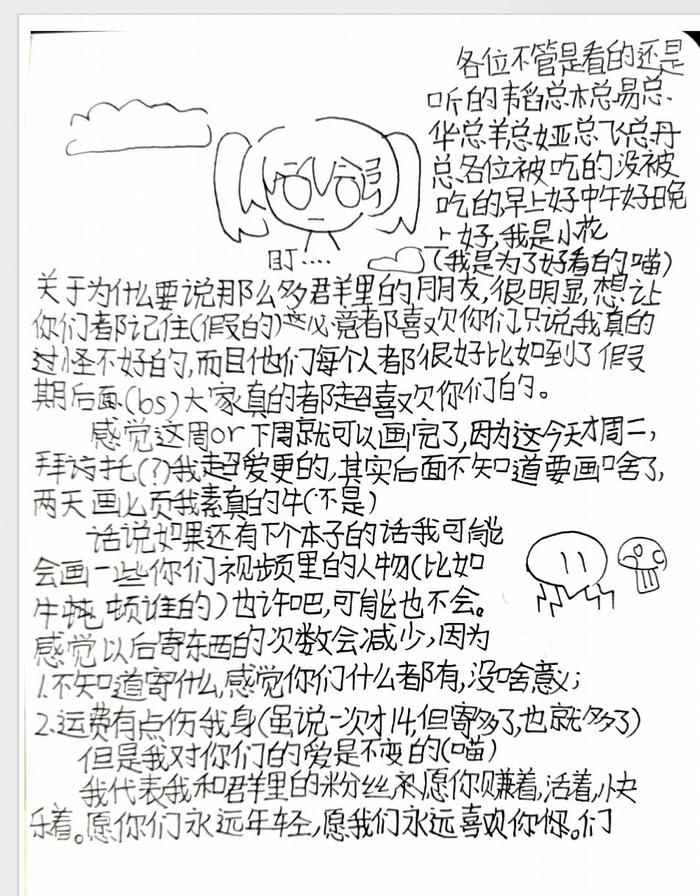 各位不管是看的还是
听的韦韬总木总易总
华总羊总娅总飞总丹
总各位被吃的没被
吃的,早上好中午好晚
上好,我是小花
盯....
(我是为了好看的喵)
关于为什么要说那么多君羊里的朋友,很明显,想让
你们都记住(假的)毕竟都喜欢你们只说我真的
过怪不好的,而且他们每个人都很好比如到了假
期后面(bs)大家真的都超喜欢你们的。
感觉这周or下周就可以画完了,因为这今天才周二,
拜讬托(?)我超爱更的,其实后面不知道要画啥了,
两天画比页我素真的牛(不是)
话说如果还有下个本子的话我可能
会画一些你们视频里的人物(比如
牛轨顿谁的)也许吧,可能也不会。
感觉以后寄东西的次数会减少,因为
1.不知道寄什么,感觉你们什么都有,没啥意义;
2.运费有点伤我身(虽说一次才14,但寄多了,也就多了)
但是我对你们的爱是不变的(喵)
我代表我和君羊里的粉丝,愿你赚着,活着,快
乐着。愿你们永远年轻,愿我们永远喜欢你你。们